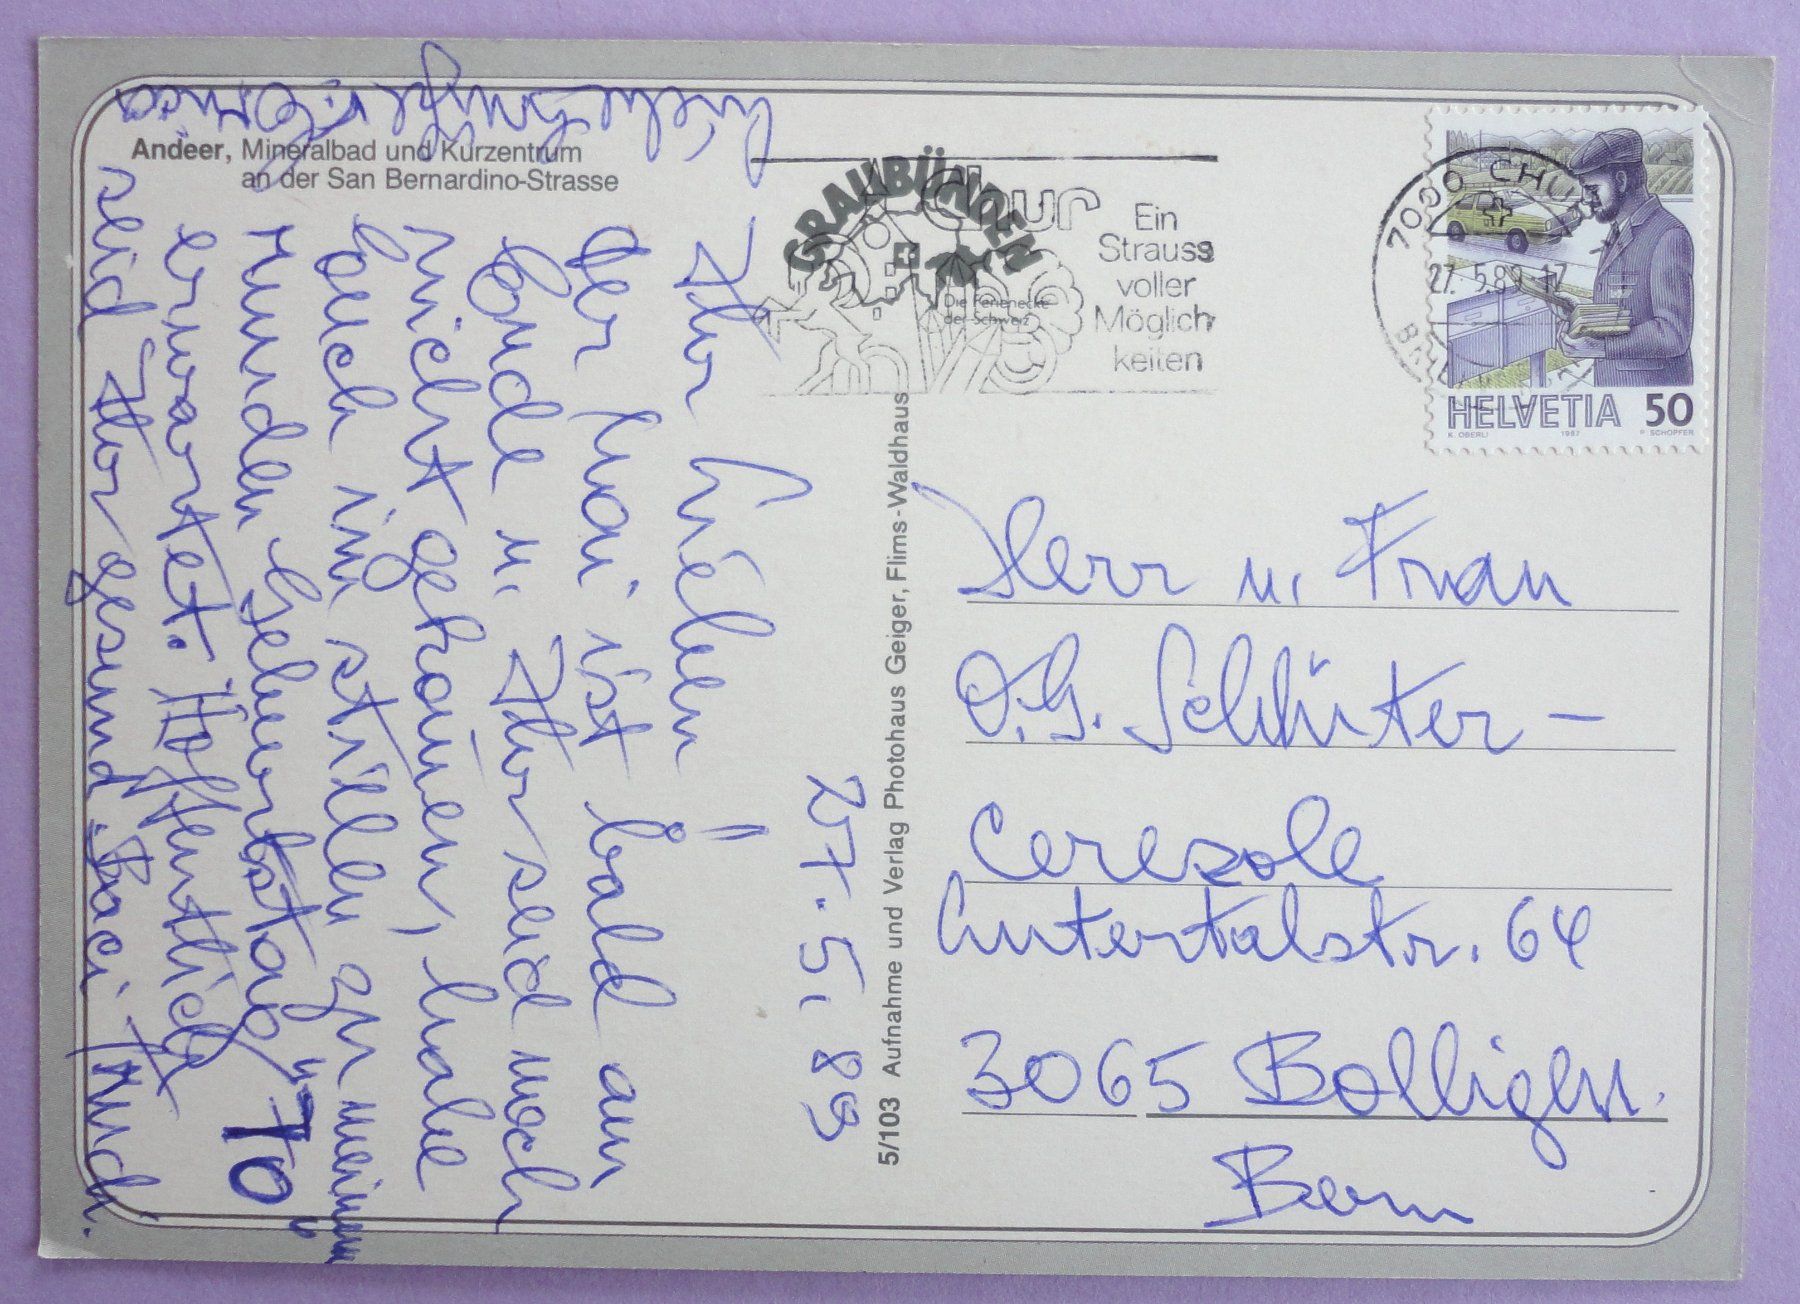 Andeer, Mineralbad und Kurzentrum
an der San Bernardino-Strasse
27.5.89
Ihr Lieben!
der Mai ist bald am
Ende u. Ihr seid noch
nicht gekommen, habe
Euch im stillen zu meinem
runden Geburtstag "70"
erwartet. Hoffentlich
seid Ihr gesund. Baci Trudi.
5/103 Aufnahme und Verlag Photohaus Geiger, Flims-Waldhaus
GRAUBÜNDEN
Die Ferienecke
der Schweiz
Chur
Ein
Strauss
voller
Möglich
keiten
7000 CHUR
27.5.89-17
HELVETIA 50
K. OBERLI 1987 P. SCHOPFER
Herr u. Frau
O.G. Schlüter-
Ceresole
Lutertalstr. 64
3065 Bolligen.
Bern